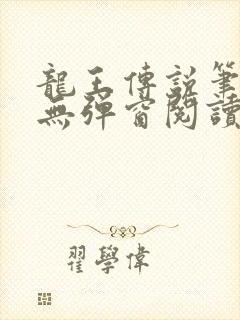 龍王傳說筆
無彈窗閱讀
翟學偉